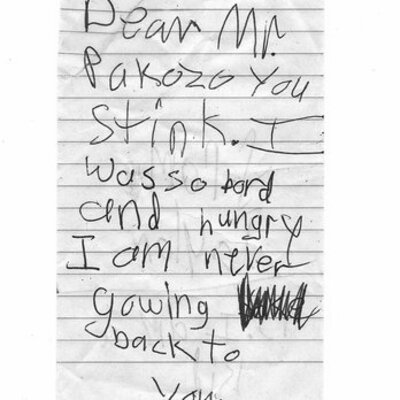 Dear Mr.
Pakozo You
Stink. I
was so bord
and hungry
I am never
gowing
back to
you